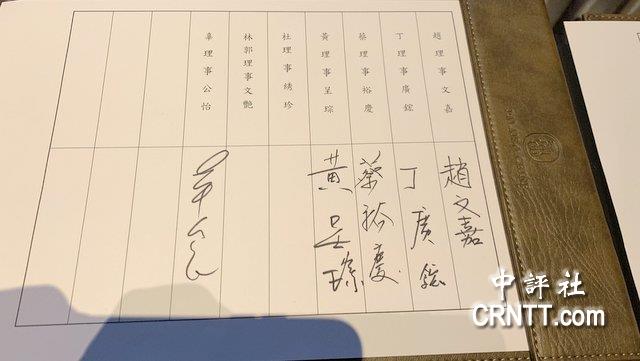 趙理事文嘉
丁理事廣鋐
蔡理事裕慶
黃理事呈琮
杜理事綉珍
林郭理事文艷
辜理事公怡
趙文嘉
丁廣鋐
蔡裕慶
黃呈琮
辜公怡
中評社
CRNTT.com